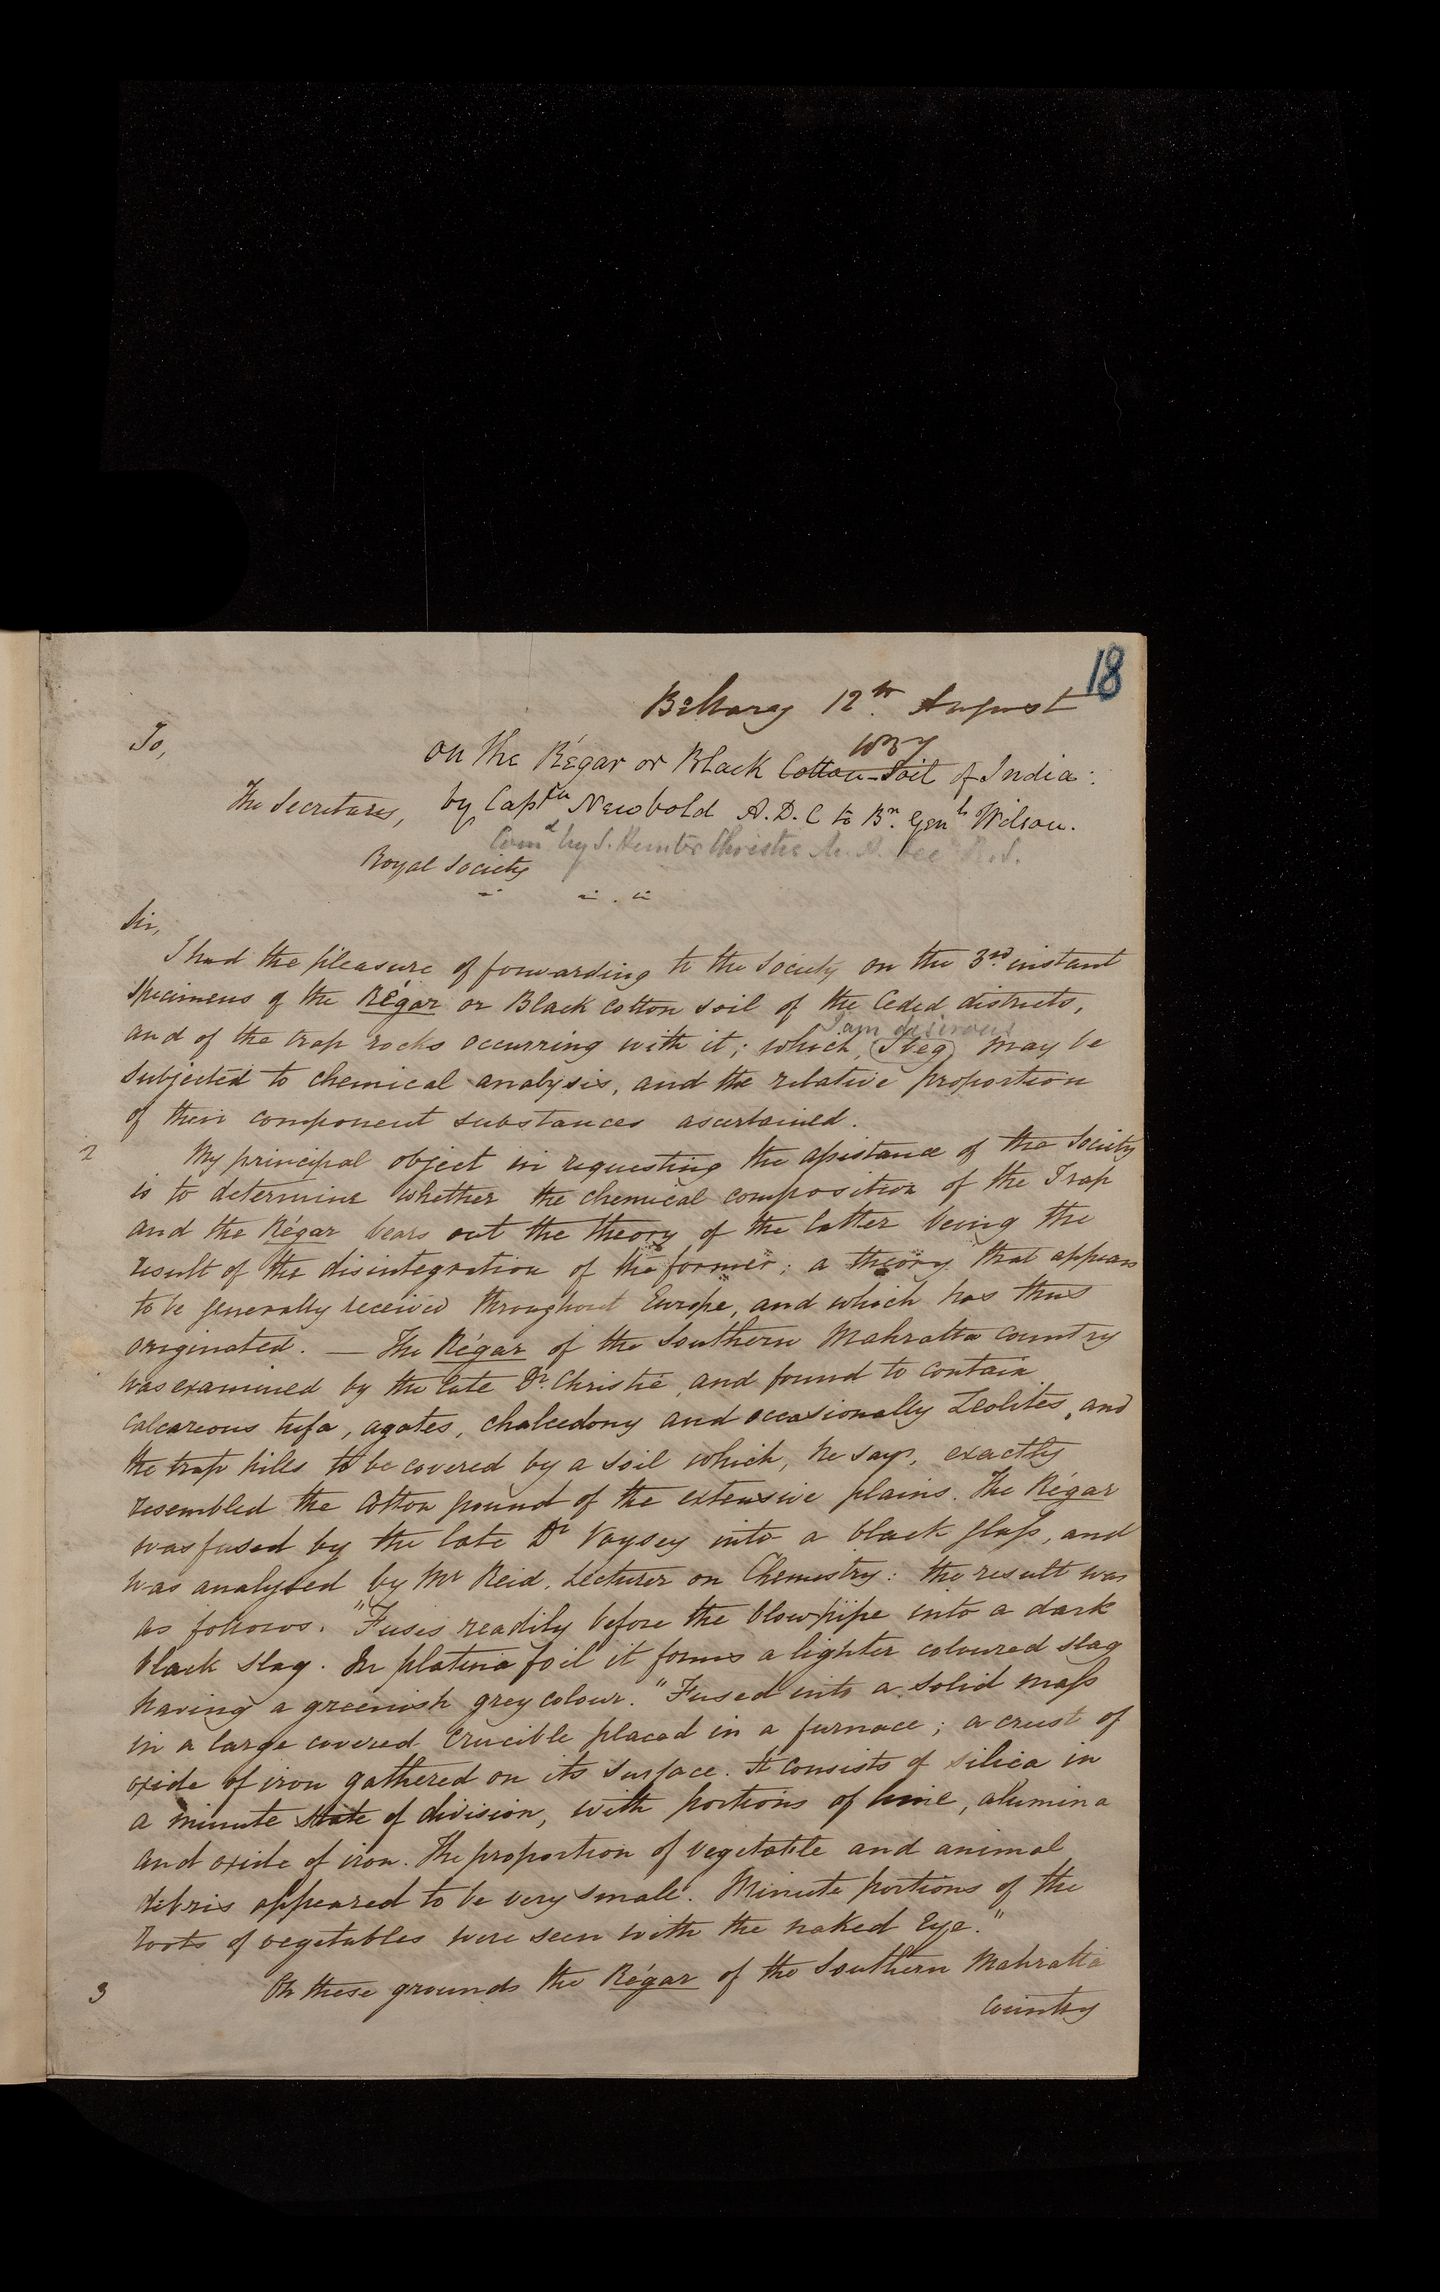 18
Bellary 12th August
1837
To,
On the Régar or Black Cotton-Soil of India:
The Secretary,
by Captn Newbold A.D.C to Bn. Genl Wilson.
Comd by S. Hunter Christie M.A. Sec R.S.
Royal Society
Sir,
I had the pleasure of forwarding to the Society on the 3rd instant
specimens of the Régar or Black Cotton soil of the Ceded districts,
I am desirous
and of the trap rocks occurring with it; which, (I beg) may be
subjected to chemical analysis, and the relative proportion
of their component substances ascertained.
2 My principal object in requesting the assistance of the Society
is to determine whether the chemical composition of the Trap
and the Régar bears out the theory of the latter being the
result of the disintegration of the former; a theory that appears
to be generally received throughout Europe, and which has thus
originated. — The Régar of the Southern Mahratta country
was examined by the late Dr. Christie, and found to contain
calcareous tufa, agates, chalcedony and occasionally Zeolites, and
the trap hills to be covered by a soil which, he says, exactly
resembled the cotton ground of the extensive plains. The Régar
was fused by the late Dr Voysey into a black glass, and
was analysed by Mr Reid, Lecturer on Chemistry: the result was
as follows. "Fuses readily before the blowpipe into a dark
black slag. On platina foil it forms a lighter coloured slag
having a greenish grey colour." Fused into a solid mass
in a large covered crucible placed in a furnace; a crust of
oxide of iron gathered on its surface. It consists of silica in
a minute state of division, with portions of lime, alumina
and oxide of iron. The proportion of vegetable and animal
debris appeared to be very small. Minute portions of the
roots of vegetables were seen with the naked Eye."
3 On these grounds the Régar of the Southern Mahratta
country